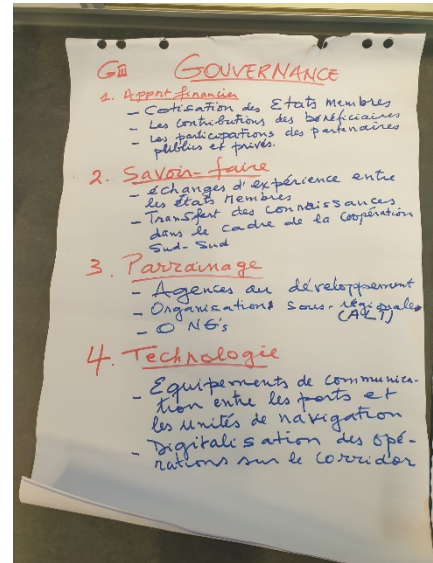 GIII GOUVERNANCE
1. Apport financier
- Cotisation des Etats Membres
- Les contributions des bénéficiaires
- Les participations des partenaires
publics et privés.
2. Savoir-faire
- échanges d'expérience entre
les états Membres
- Transfert des connaissances
dans le cadre de la Coopération
Sud-Sud
3. Parrainage
- Agences au développement
- Organisations sous-régionales
(ALT)
- ONG's
4. Technologie
- Equipements de communica-
tion entre les ports et
les unités de navigation
- Digitalisation des opé-
rations sur le corridor